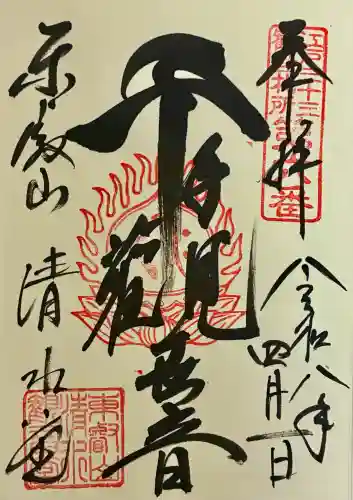 奉拝
令和八年
四月一日
千手観世音
東叡山 清水堂
江戸三十三
東叡山
清水
観音